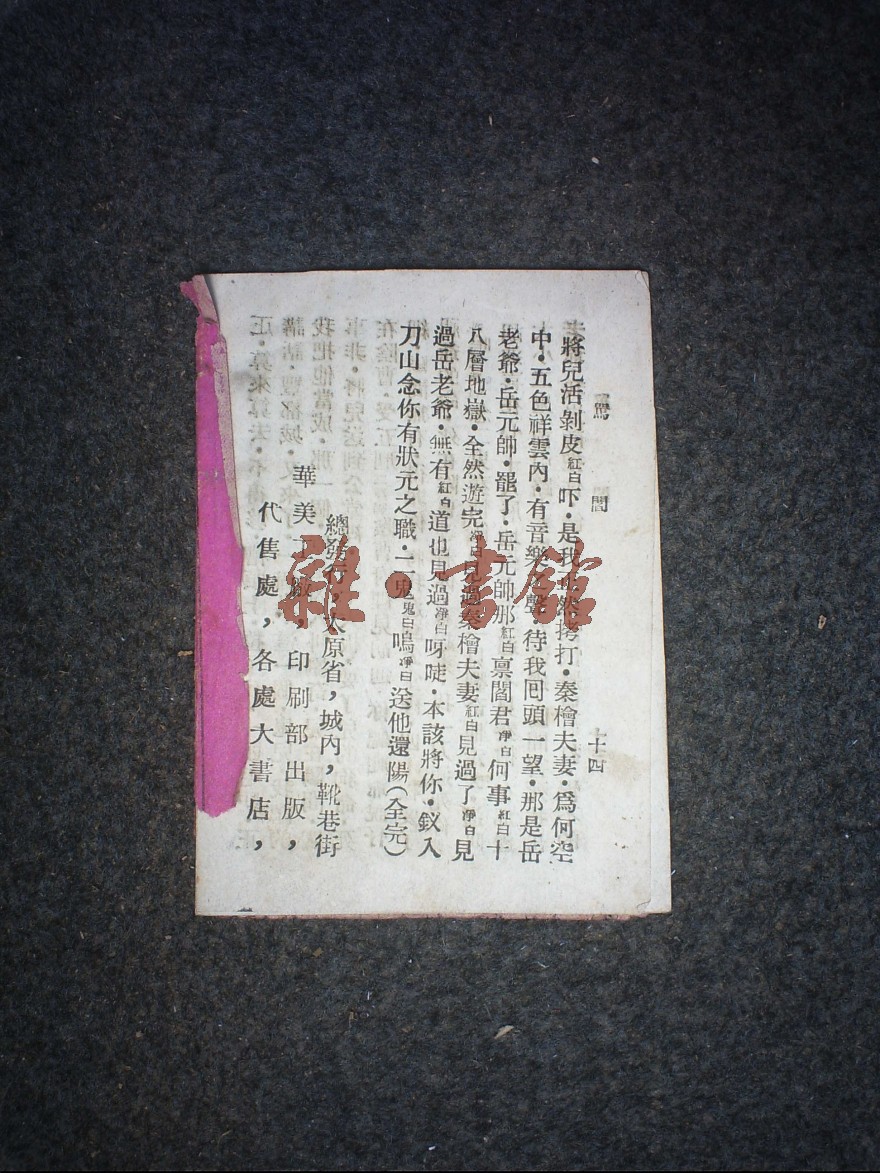 罵閻 十四
將兒活剝皮紅白吓·是我 然拷打·秦檜夫妻·爲何空
中·五色祥雲內·有音樂之聲 待我回頭一望·那是岳
老爺·岳元帥·罷了·岳元帥那紅白禀閻君淨白何事紅白十
八層地獄·全然遊完淨白見過秦檜夫妻紅白見過了淨白見
過岳老爺·無有紅白道也見過淨白呀啶·本該將你·釵入
刀山念你有狀元之職·二鬼鬼白烏淨白送他還陽(全完)
總發行,太原省,城內,靴巷街
華美工廠,印刷部出版,
代售處,各處大書店,
雜·書館